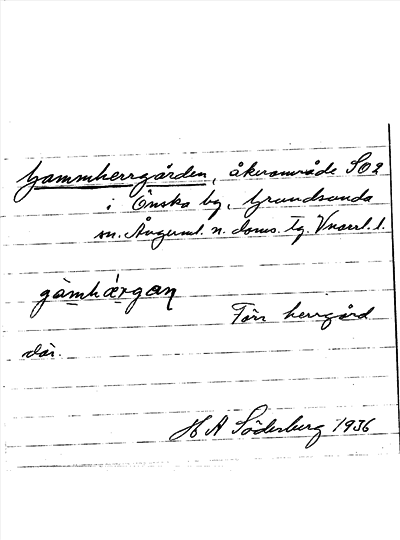 Gammherrgården, åkerområde SO2
i Önska by, Grundsunda
sn. Ångerml. n. doms. tg. Vnorrl. l.
gàmhæ̀rgaṇ
Förr herrgård
där.
H A Söderberg 1936